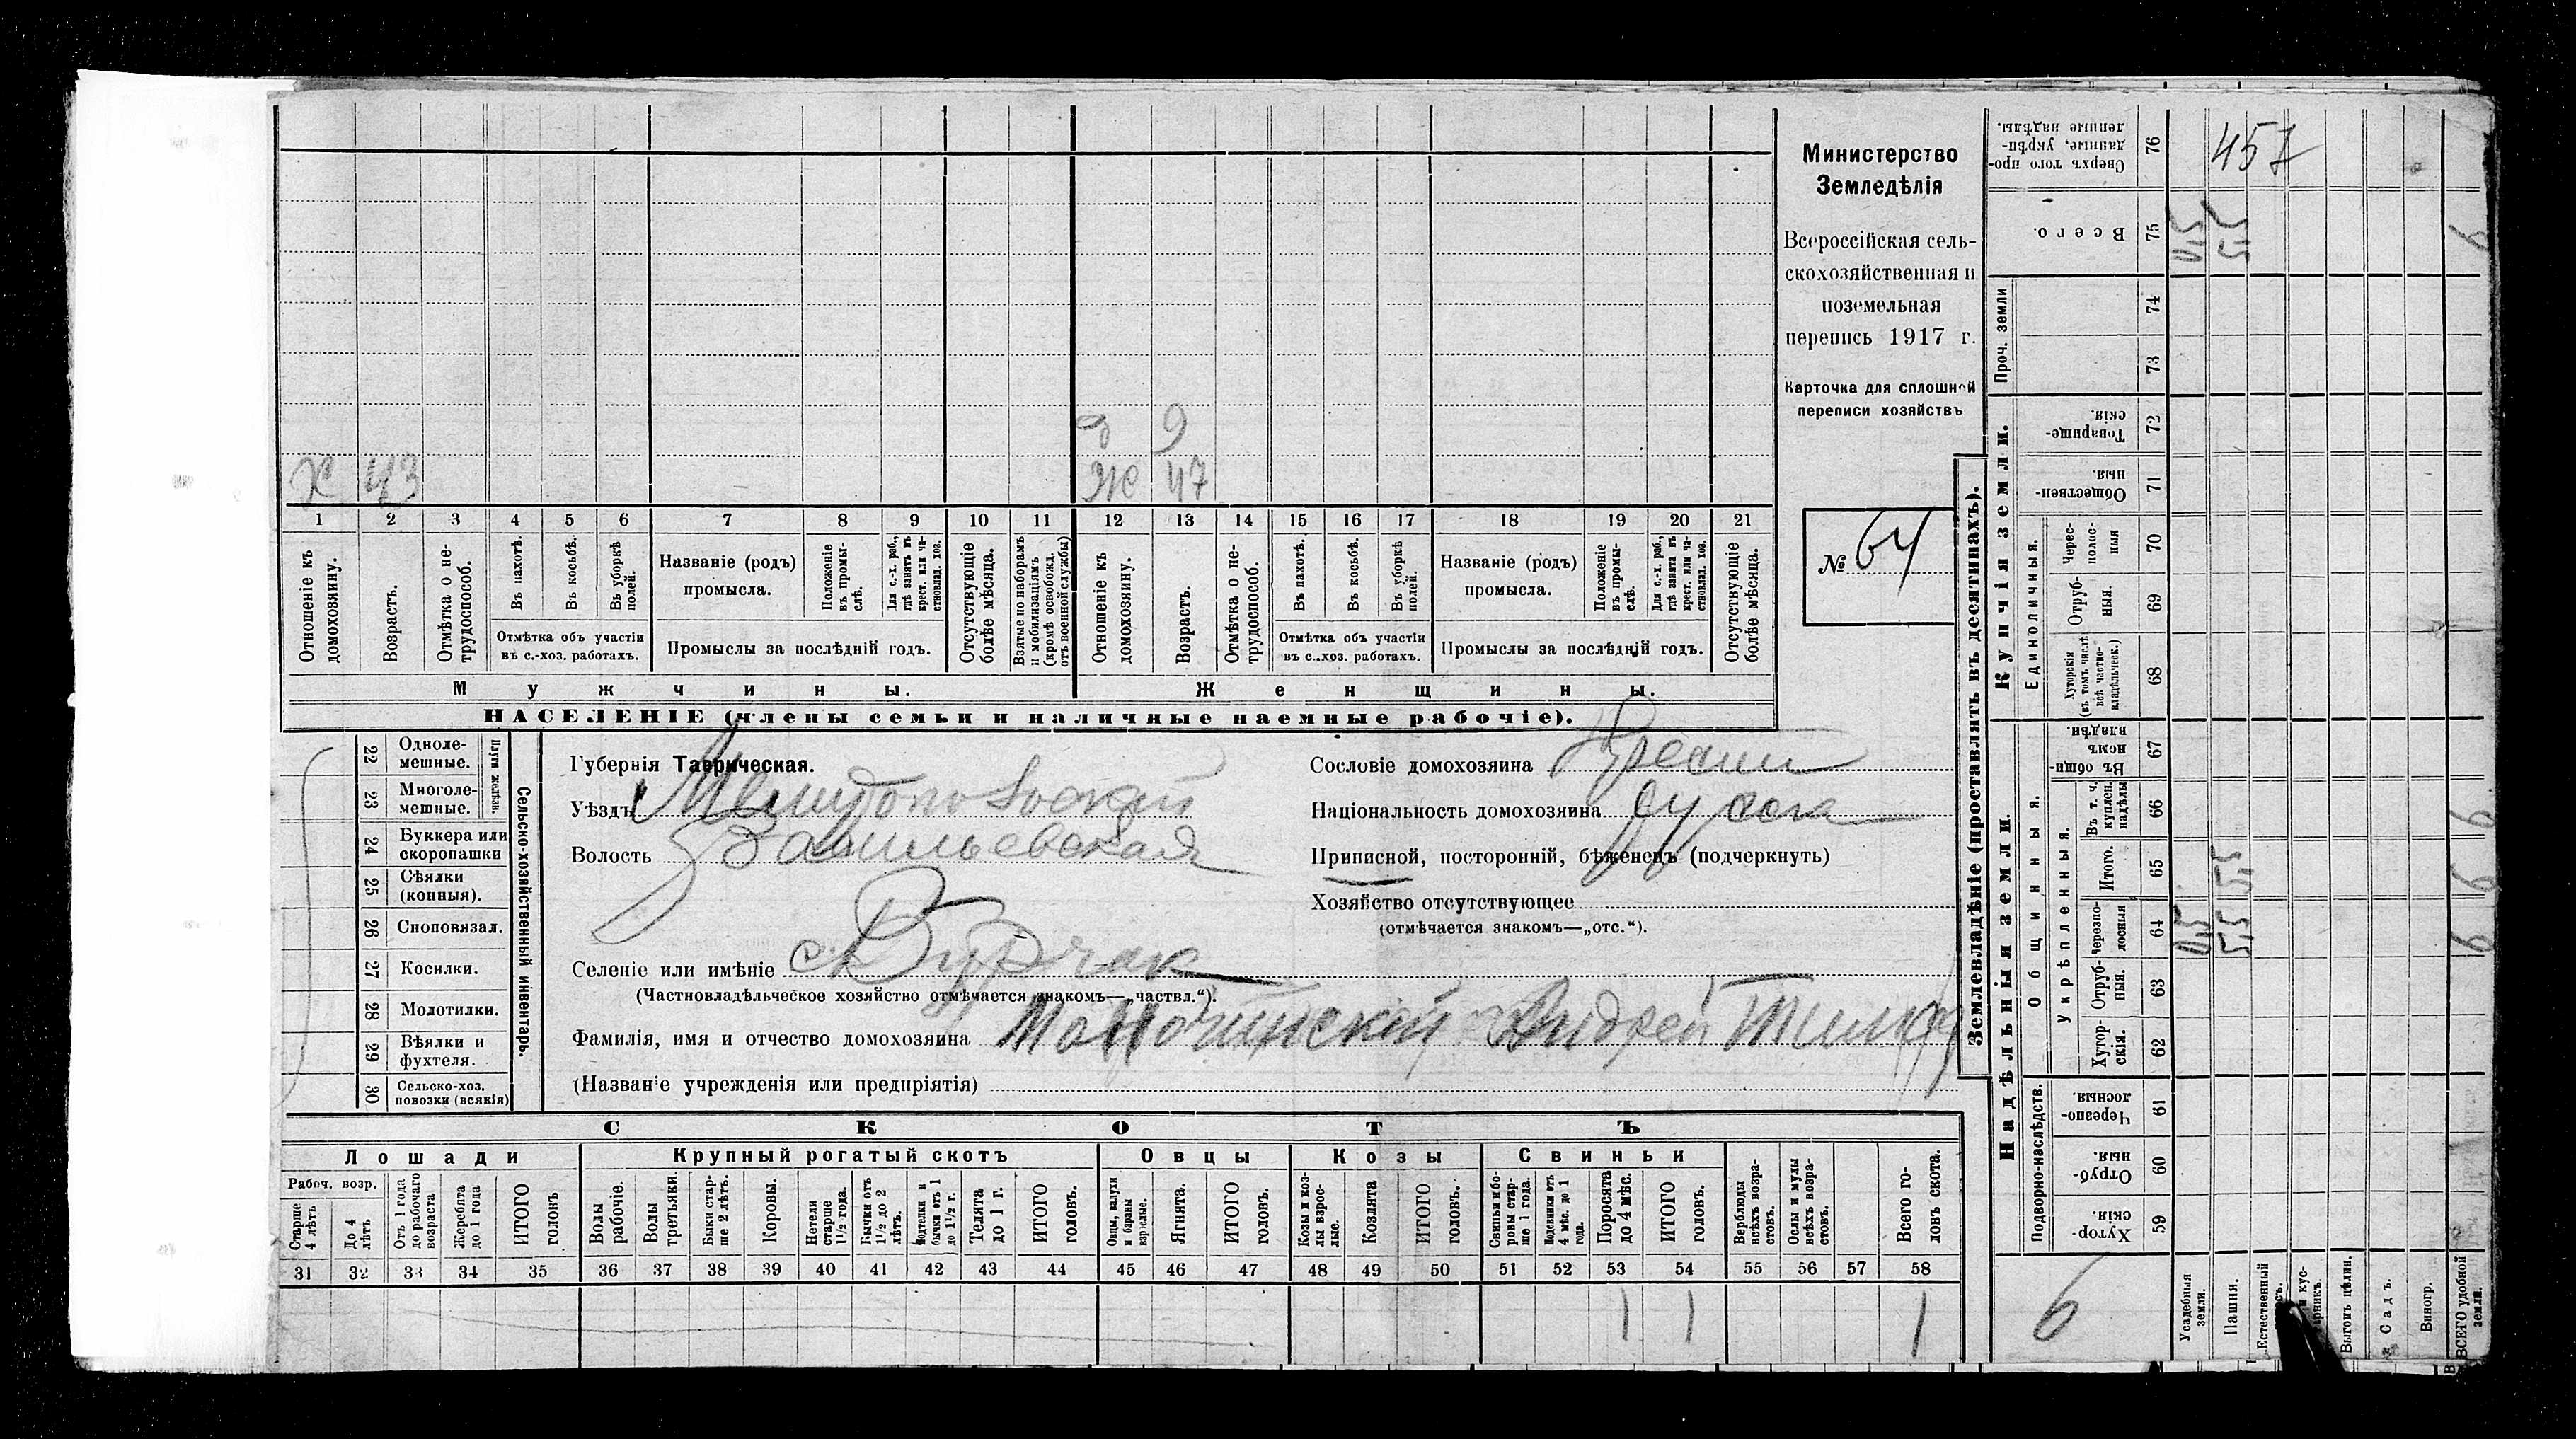 Министерство
Земледѣлія
Всероссійская сель-
скохозяйственная и
поземельная
перепись 1917 г.
Карточка для сплошной
переписи хозяйствъ
№ 64
д 9
х 43
Ж 47
1 2 3 4 5 6 7 8 9 10 11 12 13 14 15 16 17 18 19 20 21
Отношеніе къ домохозяину.
Возрастъ.
Отмѣтка о не-трудоспособ.
Въ пахотѣ.
Въ косьбѣ.
Въ уборкѣ полей.
Отмѣтка объ участіи
въ с.-хоз. работахъ.
Названіе (родъ)
промысла.
Положеніе въ промы-слѣ.
Для с.-х. раб., гдѣ занятъ въ крест. или ча-стновлад. хоз.
Промыслы за послѣдній годъ.
Отсутствующіе болѣе мѣсяца.
Взятые по наборамъ и мобилизаціямъ (кромѣ освобожд. отъ военной службы)
Отношеніе къ домохозяину.
Возрастъ.
Отмѣтка о не-трудоспособ.
Въ пахотѣ.
Въ косьбѣ.
Въ уборкѣ полей.
Отмѣтка объ участіи
въ с.-хоз. работахъ.
Названіе (родъ)
промысла.
Положеніе въ промы-слѣ.
Для с.-х. раб., гдѣ занята въ крест. или ча-стновлад. хоз.
Промыслы за послѣдній годъ.
Отсутствующіе болѣе мѣсяца.
Мужчины.
Женщины.
НАСЕЛЕНІЕ (члены семьи и наличные наемные рабочіе).
Сельско-хозяйственный инвентарь.
Плуги желѣзн.
22 Одноле-мешные.
23 Многоле-мешные.
24 Буккера или скоропашки
25 Сѣялки (конныя).
26 Сноповязал.
27 Косилки.
28 Молотилки.
29 Вѣялки и фухтеля.
30 Сельско-хоз. повозки (всякія)
Губернія Таврическая.
Уѣздъ Мелитопольскій
Волость Васильевская
Селеніе или имѣніе с. Бурчак
(Частновладѣльческое хозяйство отмѣчается знакомъ—„частвл.“).
Фамилія, имя и отчество домохозяина Андрей Тимоф
(Названіе учрежденія или предпріятія)
Сословіе домохозяина Кресты
Національность домохозяина русск
Приписной, посторонній, бѣженецъ (подчеркнуть)
Хозяйство отсутствующее
(отмѣчается знакомъ—„отс.“).
СКОТЪ
Лошади
Крупный рогатый скотъ
Овцы
Козы
Свиньи
Рабоч. возр.
Старше 4 лѣтъ
До 4 лѣтъ
Отъ 1 года до рабочаго возраста
Жеребята до 1 года
ИТОГО головъ
Волы рабочіе.
Волы третьяки.
Быки стар-ше 2 лѣтъ.
Коровы.
Нетели старше 1½ года.
Бычки отъ 1½ до 2 лѣтъ.
Подтелки и бычки отъ 1 до 1½ г.
Телята до 1 г.
ИТОГО головъ.
Овцы, валухи и бараны взрослые.
Ягнята.
ИТОГО головъ.
Козы и коз-лы взрос-лые.
Козлята
ИТОГО головъ.
Свиньи и бо-ровы стар-ше 1 года.
Подсвинки отъ 4 мѣс. до 1 года.
Поросята до 4 мѣс.
ИТОГО головъ.
Верблюды всѣхъ возра-стовъ.
Ослы и мулы всѣхъ возра-стовъ.
Всего го-ловъ скота.
31 32 33 34 35 36 37 38 39 40 41 42 43 44 45 46 47 48 49 50 51 52 53 54 55 56 57 58
1 1 1
Землевладѣніе (проставлять въ десятинахъ).
Надѣльныя земли.
Купчія земли.
Проч. земли
Подворно-наслѣдств.
Общинныя.
Укрѣпленныя.
Единоличныя.
Сверхъ того про-данные, укрѣп-ленные надѣлы. 76
457
Всего. 75
0,5 5,5 6
74
73
Товарище-скія. 72
Обществен-ныя. 71
Черес-полос-ныя 70
Отруб-ныя. 69
Хуторскія (въ томъ числѣ всѣ частно-владѣльческ.) 68
Въ общи-номъ владѣн. 67
Въ т. ч. куплен. надѣлы 66
6
Итого. 65
5,5 6
Черезпо-лосныя 64
0,5 5,5 6
Отруб-ныя. 63
Хутор-скія. 62
Черезпо-лосныя. 61
Отруб-ныя. 60
Хутор-скія. 59
6
Усадебныя земли.
Пашня.
Естественный
Выгонъ цѣлин.
Садъ.
Виногр.
ВСЕГО удобной земли.